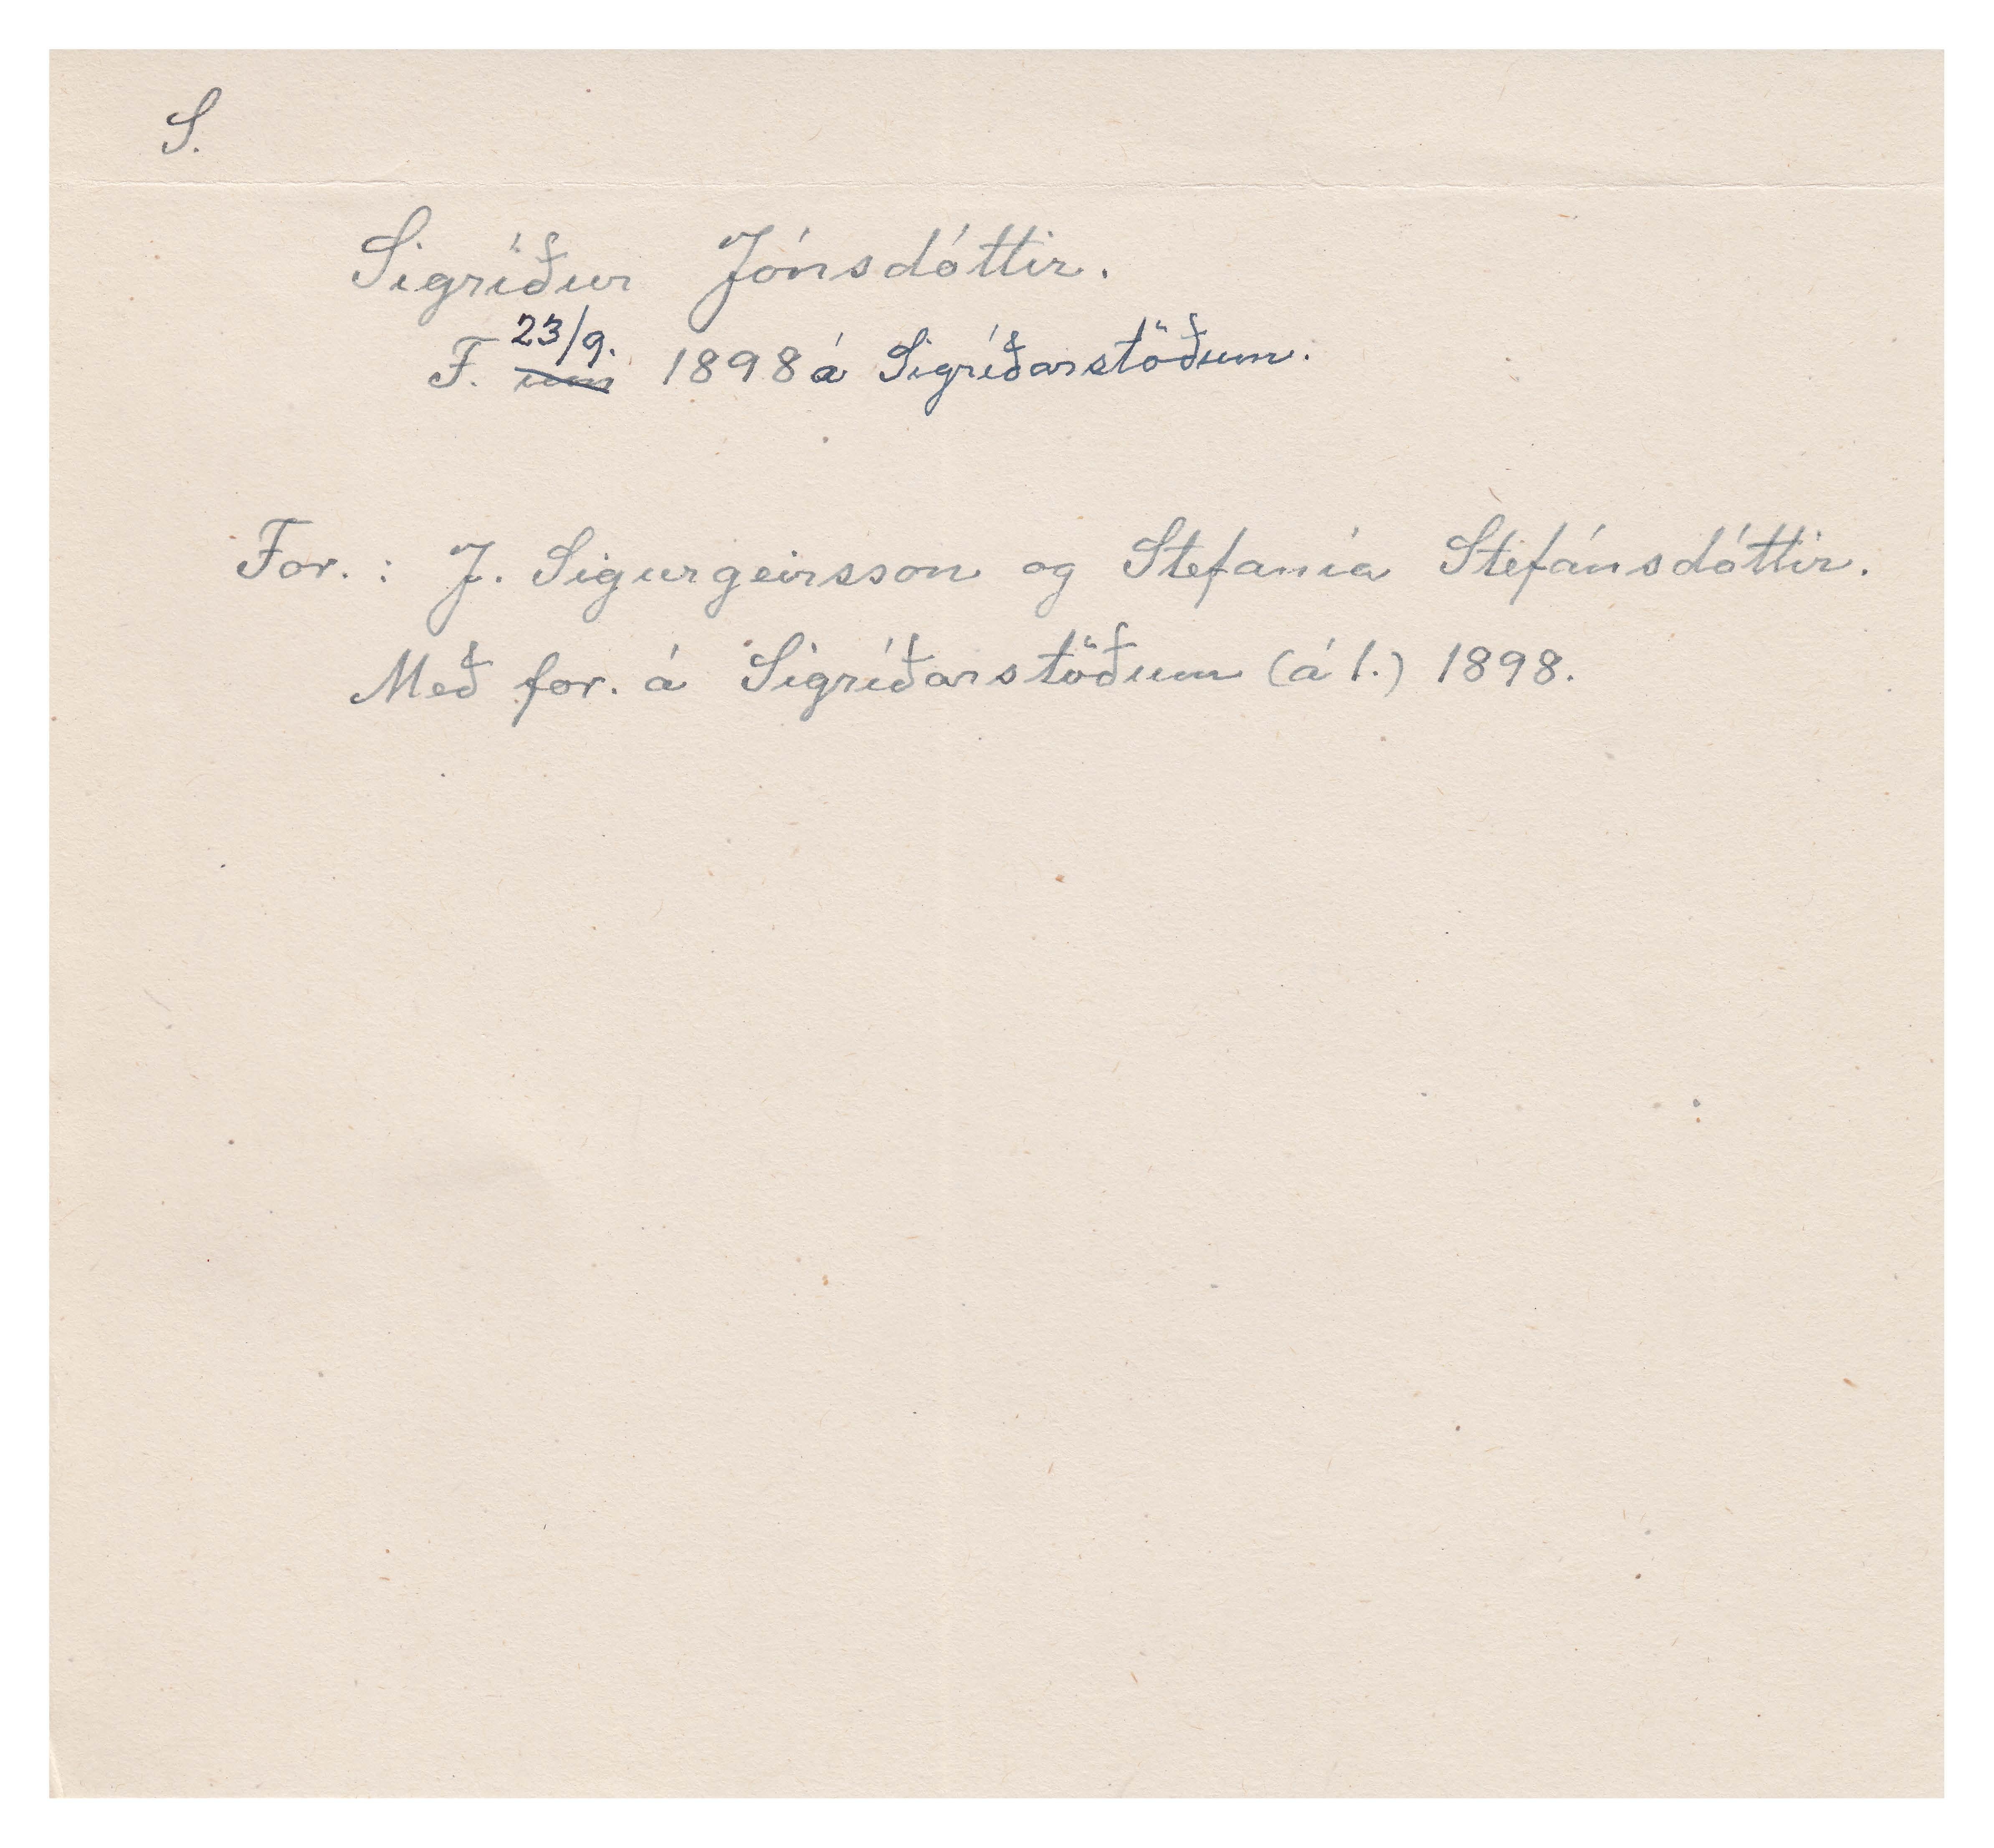 S.
Sigríður Jónsdóttir.
F. um 23/9. 1898 á Sigríðarstöðum.
For.: J. Sigurgeirsson og Stefanía Stefánsdóttir.
Með for. á Sigríðarstöðum (á 1.) 1898.